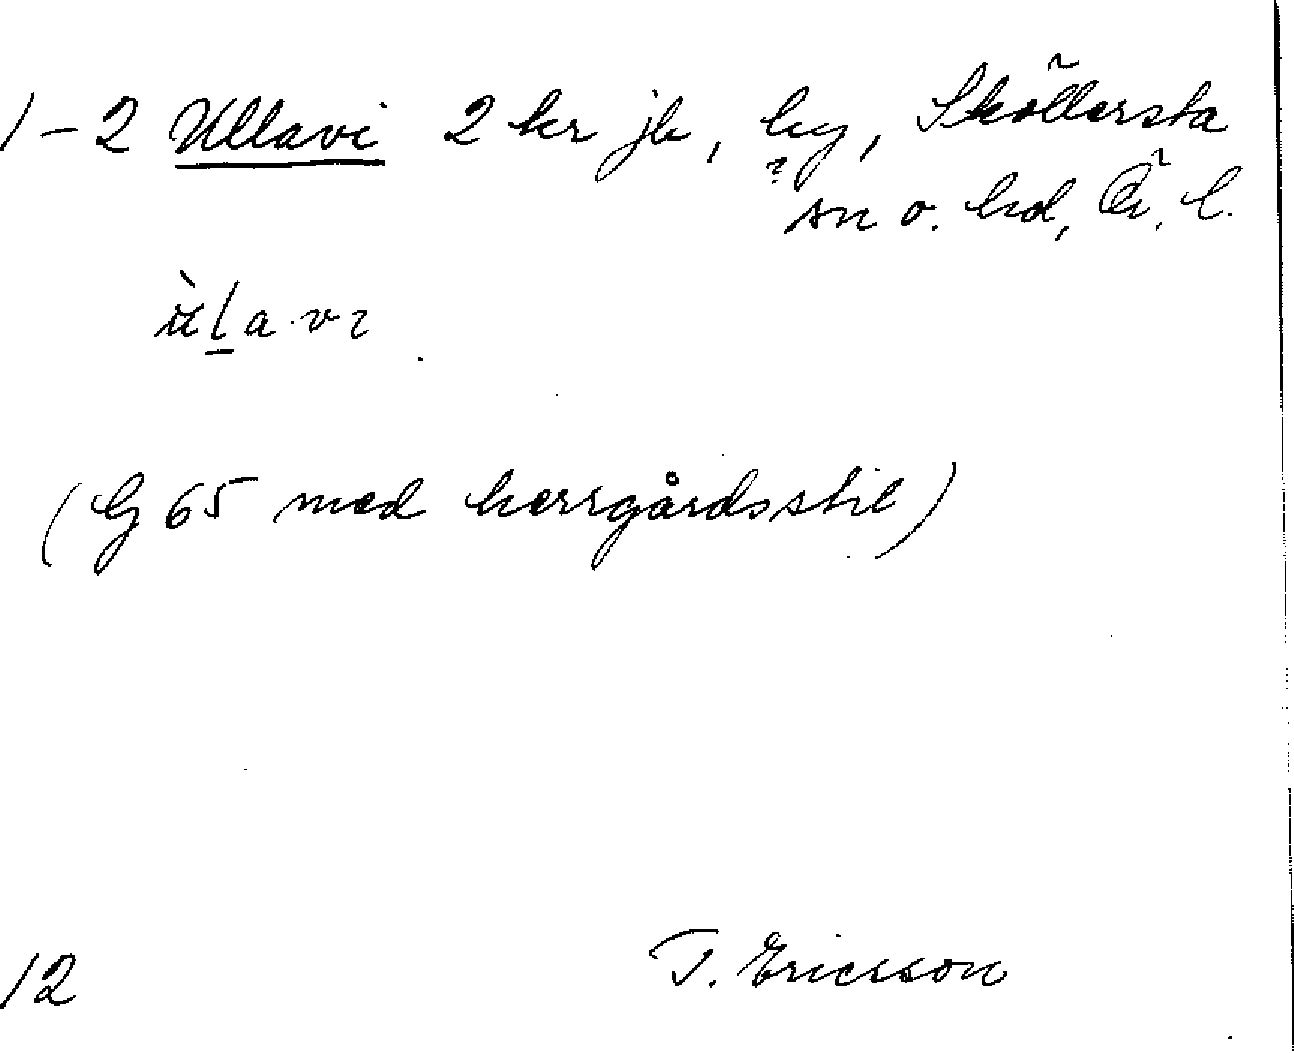 1-2 Ullavi 2 kr jb, by, Sköllersta
?
sn o. hd, Ö. l.
(G 65 med herrgårdsstil)
12 T. Ericsson